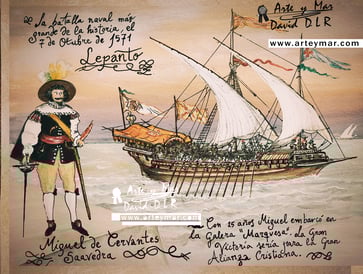 La batalla naval más
grande de la historia, el
7 de Octubre de 1571
Lepanto
Arte y Mar
David DLR
www.arteymar.com
Arte y Mar
David DLR
Miguel de Cervantes
Saavedra
Con 25 años Miguel embarcó en
la Galera "Marquesa". La Gran
Victoria sería para la Gran
Alianza Cristiana.